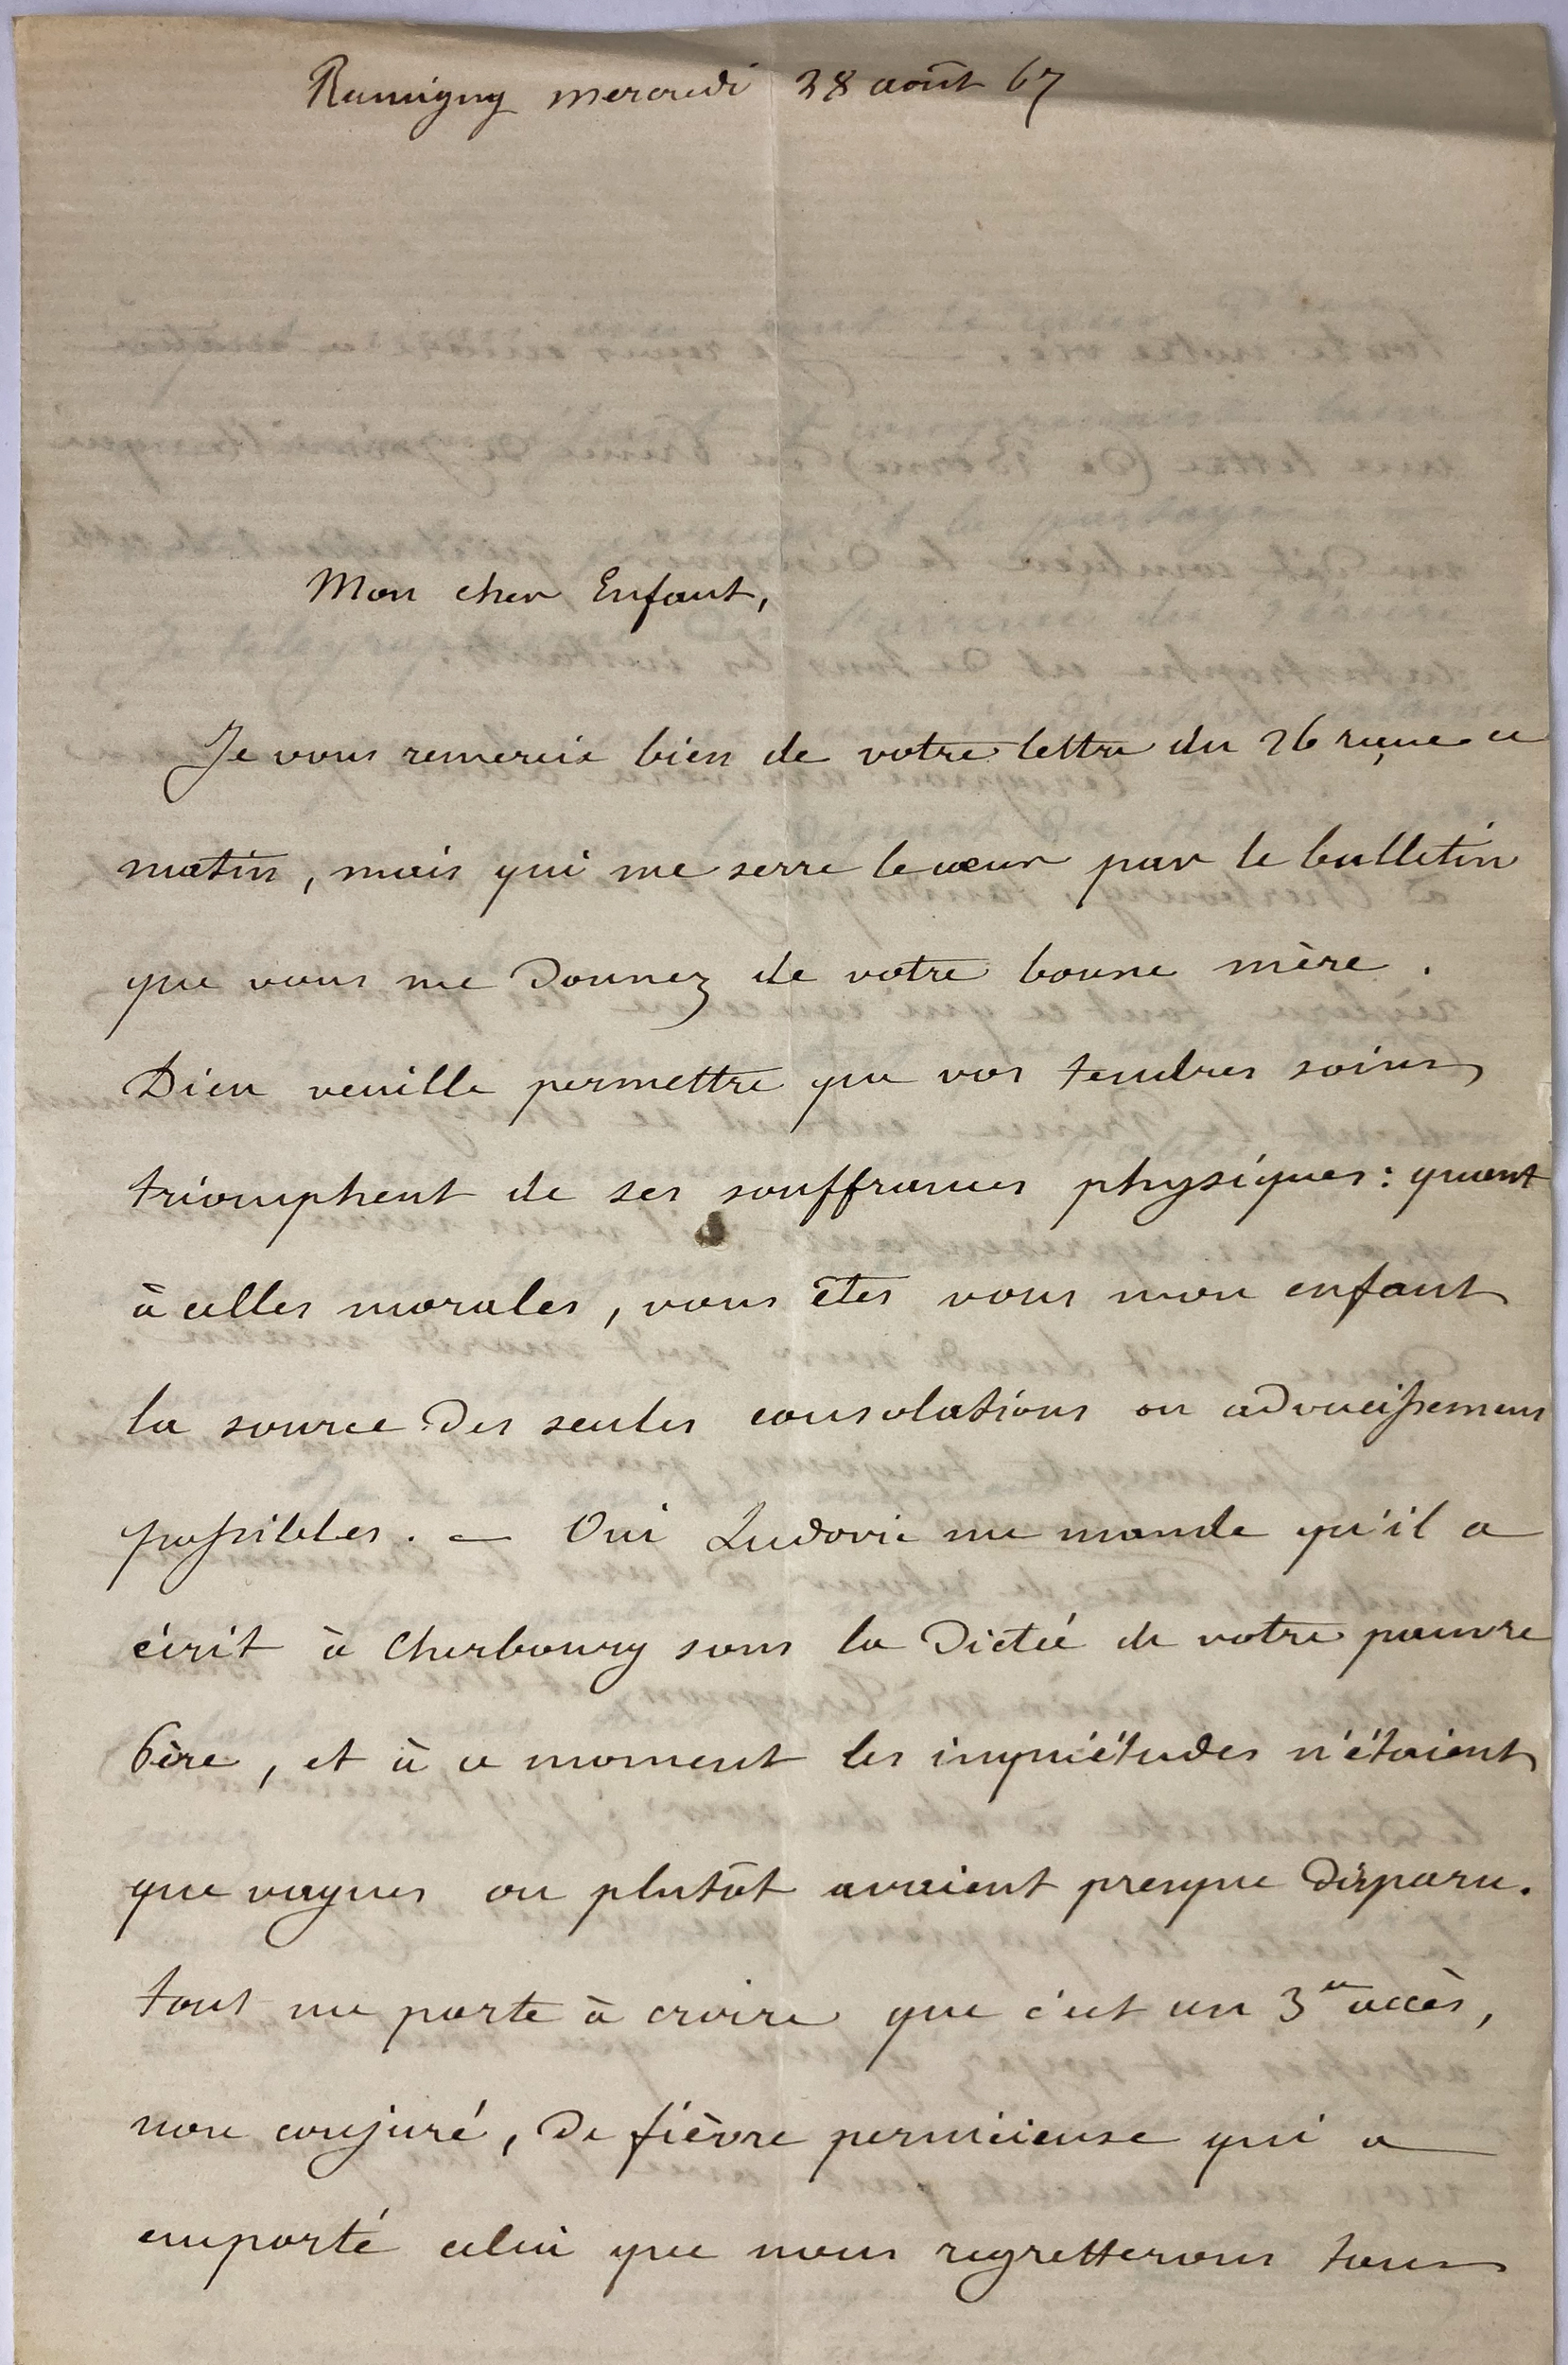 Rumigny mercredi 28 août 67
Mon cher Enfant,
Je vous remercie bien de votre lettre du 26 reçue ce
matin, mais qui me serre le cœur par le bulletin
que vous me donnez de votre bonne mère.
Dieu veuille permettre que vos tendres soins
triomphent de ses souffrances physiques : quant
à celles morales, vous êtes vous mon enfant
la source des seules consolations ou adoucissemens
possibles. — Oui Ludovic me mande qu'il a
écrit à Cherbourg sous la dictée de votre pauvre
Père, et à ce moment les inquiétudes n'étaient
que vagues ou plutôt avaient presque disparu.
tout me porte à croire que c'est un 3e accès,
non conjuré, de fièvre pernicieuse qui a
emporté celui que nous regretterons tous